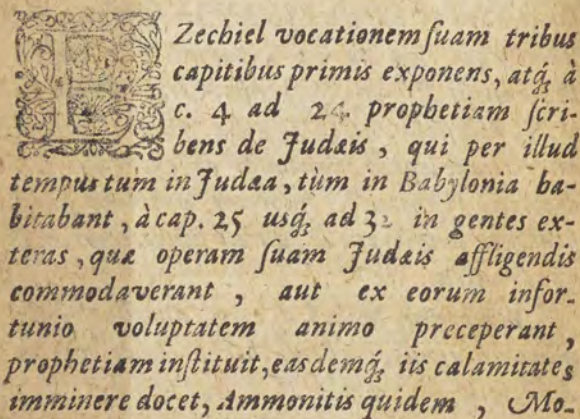 EZechiel vocationem ſuam tribus
capitibus primis exponens, atq́; à
c. 4 ad 24 prophetiam ſcri-
bens de Judæis, qui per illud
tempus tum in Judæa, tùm in Babylonia ha-
bitabant, à cap. 25 usq́; ad 32 in gentes ex-
teras, quæ operam ſuam Judæis affligendis
commodaverant, aut ex eorum infor-
tunio voluptatem animo preceperant,
prophetiam inſtituit, easdemq́; iis calamitates
imminere docet, Ammonitis quidem, Mo-